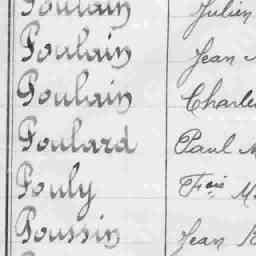 Poulain Julien
Poulain Jean
Poulain Charles
Poulard Paul M
Pouly Fçois M
Poussin Jean B